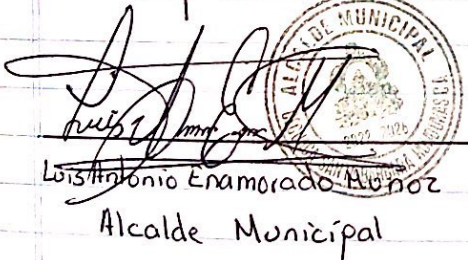 ALCALDE MUNICIPAL
2022 2026
Luis Antonio Enamorado Muñoz
Alcalde Municipal